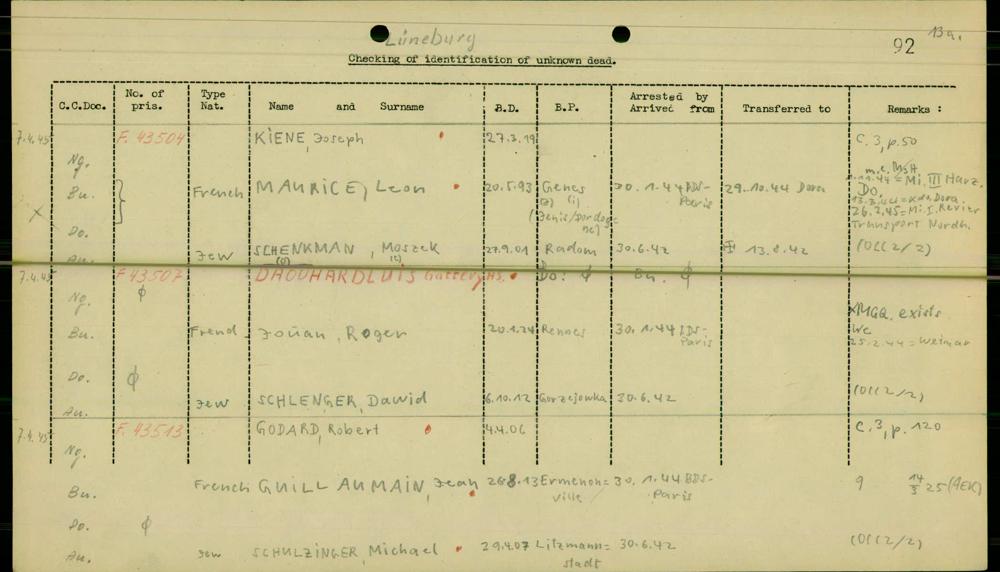 Lüneburg
92 13a.
Checking of identification of unknown dead.
C.C.Doc. No. of pris. Type Nat. Name and Surname B.D. B.P. Arrested by Arrived from Transferred to Remarks :
7.4.45 F. 43504 KIENE, Joseph 27.3.19 C.3, p.50
Ng.
Bu. French MAURICE, Leon 20.5.93 Genes 30.1.44 BDS- Paris 29.10.44 Dora
= Mi. III Harz.
Do.
26.2.45 = Mi. I. Revier
Transport Nordh.
X
Do.
Au. Jew SCHENKMAN, Moszek 27.9.01 Radom 30.6.42 13.8.42 (OCC 2/2)
7.4.45 F 43507 DAOUHARDLUIS Do: ϕ Bu. ϕ
Ng. ϕ
XMGQ. exists
Bu. French Joüan, Roger 20.1.24 Rennes 30.1.44 BDS- Paris
25.2.44 = Weimar
Do. ϕ
Au. Jew SCHLENGER, Dawid 6.10.12 Gorzejowka 30.6.42 (OCC 2/2)
7.4.45 F. 43513 GODARD, Robert 4.4.06 C.3, p. 120
Ng.
Bu. French GUILLAUMAIN, Jean 26.8.13 Ermenon= ville 30.1.44 BDS- Paris
Do. ϕ
Au. Jew SCHULZINGER, Michael 29.4.07 Litzmann= stadt 30.6.42 (OCC 2/2)